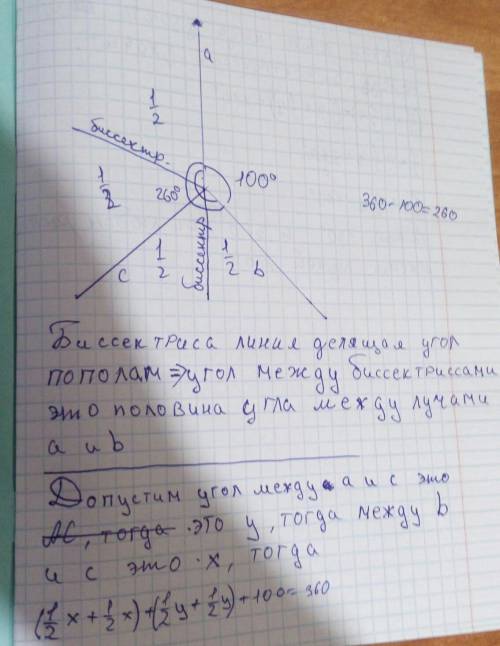 a
1/2
биссектр.
1/2
260°
100°
360-100=260
c
1/2
биссектр
1/2
b
Биссектриса линия делящая угол
пополам ⇒ угол между биссектриссами
это половина угла между лучами
a и b
Допустим угол между a и c это
AC, тогда это y, тогда между b
и c это x, тогда
(1/2 x + 1/2 x) + (1/2 y + 1/2 y) + 100 = 360